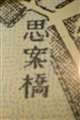 思案橋